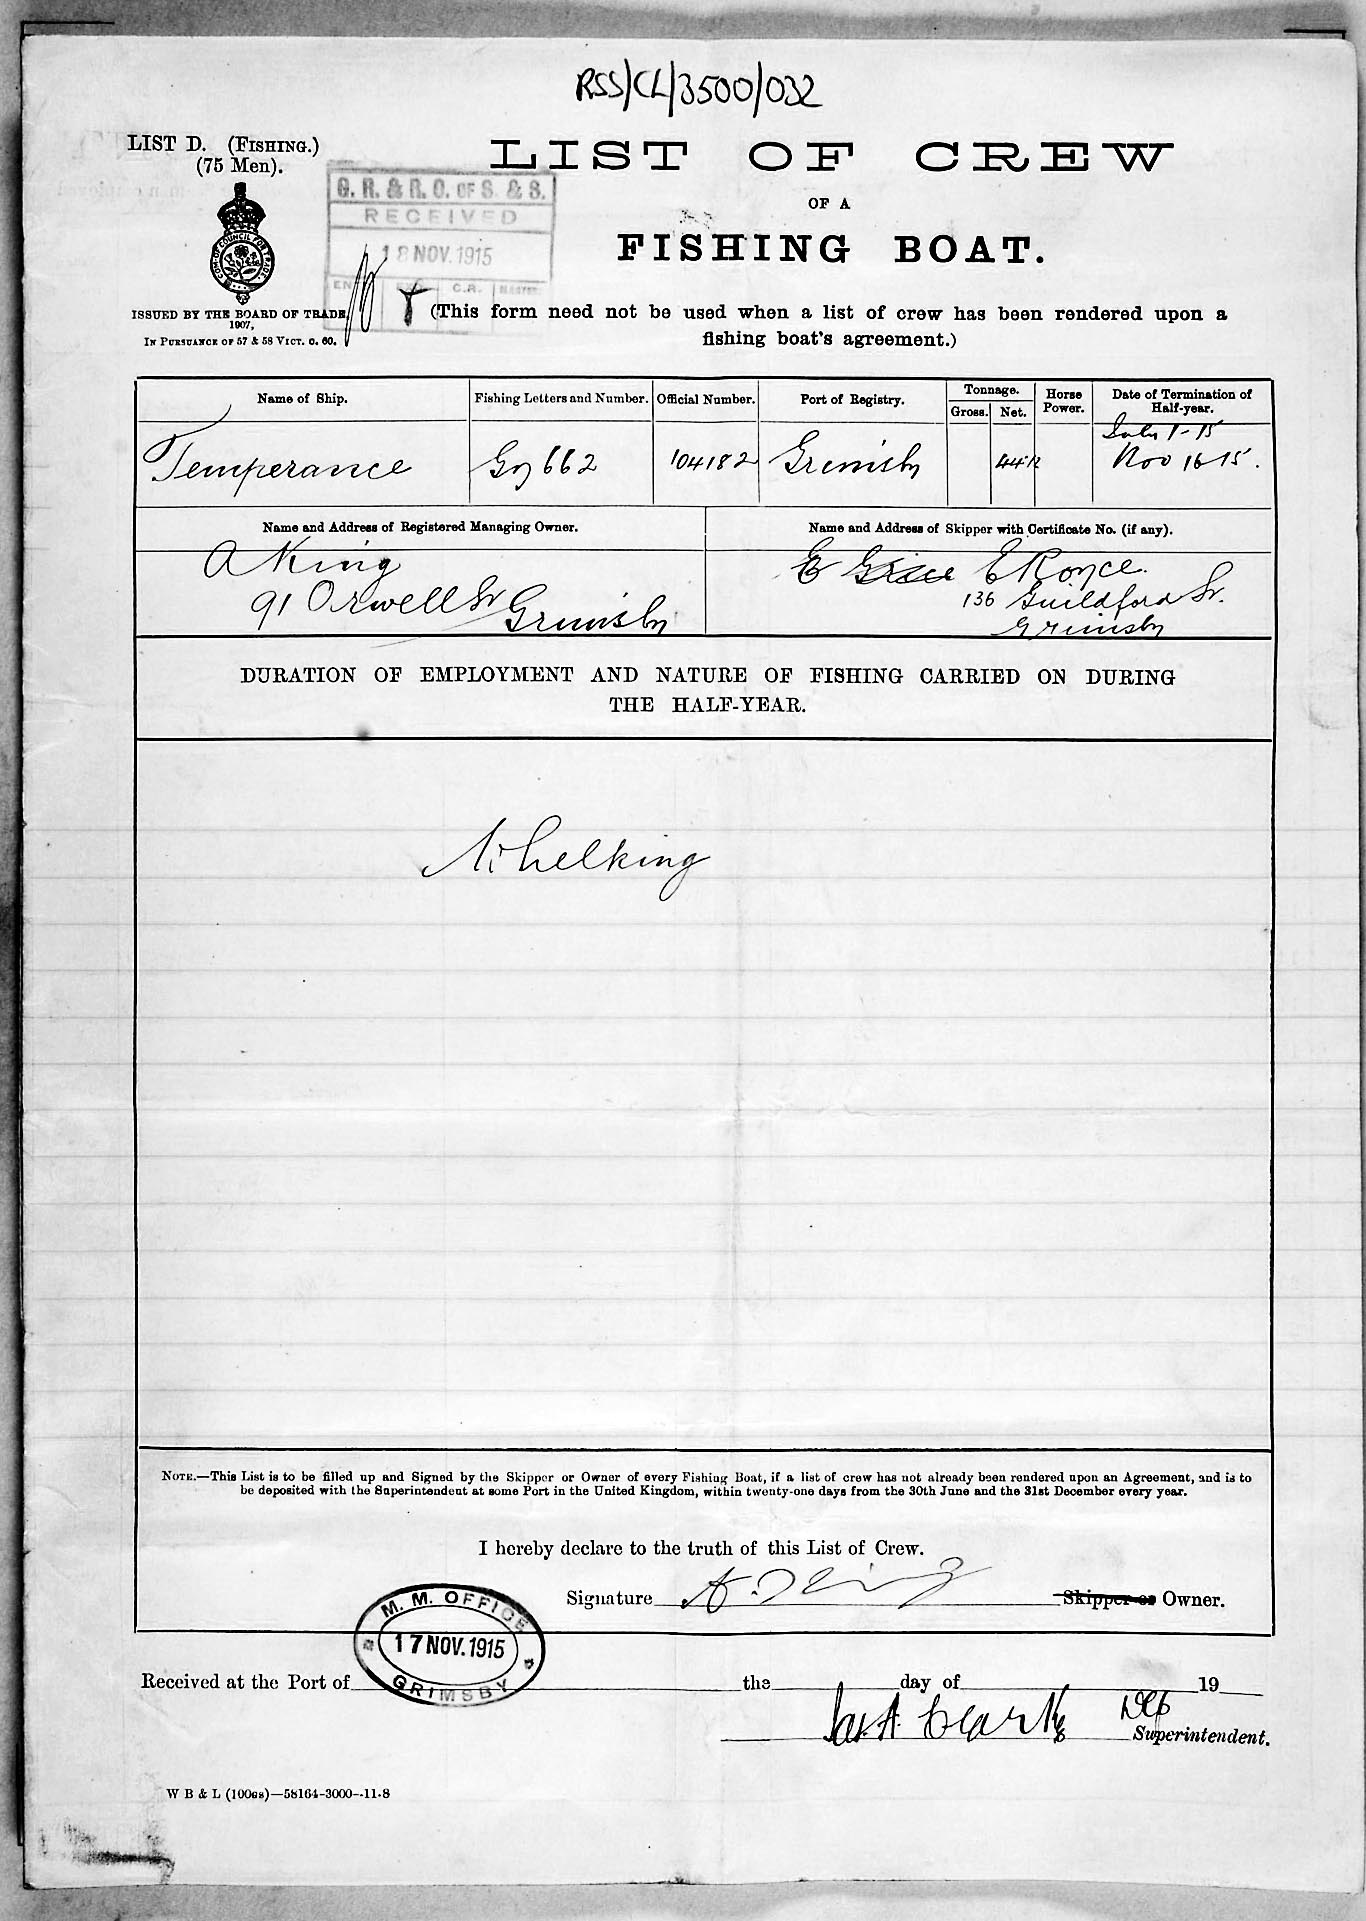 RSS/CL/3500/032
LIST D. (FISHING.)
(75 Men).
LIST OF CREW
OF A
FISHING BOAT.
G. R. & R. O. OF S. & S.
RECEIVED
18 NOV. 1915
C.R.
ISSUED BY THE BOARD OF TRADE,
1907,
IN PURSUANCE OF 57 & 58 VICT. C. 60.
(This form need not be used when a list of crew has been rendered upon a
fishing boat's agreement.)
Name of Ship. Fishing Letters and Number. Official Number. Port of Registry. Tonnage. Gross. Net. Horse Power. Date of Termination of Half-year.
July 1-15
Temperance Gy 662 104182 Grimsby 44 Nov 16 15.
Name and Address of Registered Managing Owner. Name and Address of Skipper with Certificate No. (if any).
A King E Royce.
91 Orwell St Grimsby 136 Guildford St.
Grimsby
DURATION OF EMPLOYMENT AND NATURE OF FISHING CARRIED ON DURING
THE HALF-YEAR.
Whelking
NOTE.—This List is to be filled up and Signed by the Skipper or Owner of every Fishing Boat, if a list of crew has not already been rendered upon an Agreement, and is to
be deposited with the Superintendent at some Port in the United Kingdom, within twenty-one days from the 30th June and the 31st December every year.
I hereby declare to the truth of this List of Crew.
Signature A. King Skipper or Owner.
M. M. OFFICE
17 NOV. 1915
GRIMSBY
Received at the Port of the day of 19
Clark Dep
Superintendent.
W B & L (100gs)—58164-3000--11-8